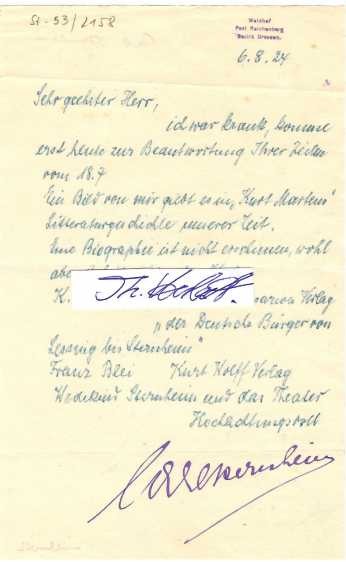 St-53/2158
Waldhof
Post Reichenberg
Bezirk Dresden.
6.8.24
Sehr geehrter Herr,
ich war krank, komme
erst heute zur Beantwortung Ihrer Zeilen
vom 18.7
Ein Bild von mir giebt es in „Kurt Martens"
Litteraturgeschichte unserer Zeit.
Eine Biographie ist nicht erschienen, wohl
aber
K. Verlag
„der Deutsche Bürger von
Lessing bis Sternheim"
Franz Blei Kurt Wolff Verlag
Wedekind Sternheim und das Theater
Hochachtungsvoll
Carl Sternheim
Sternheim